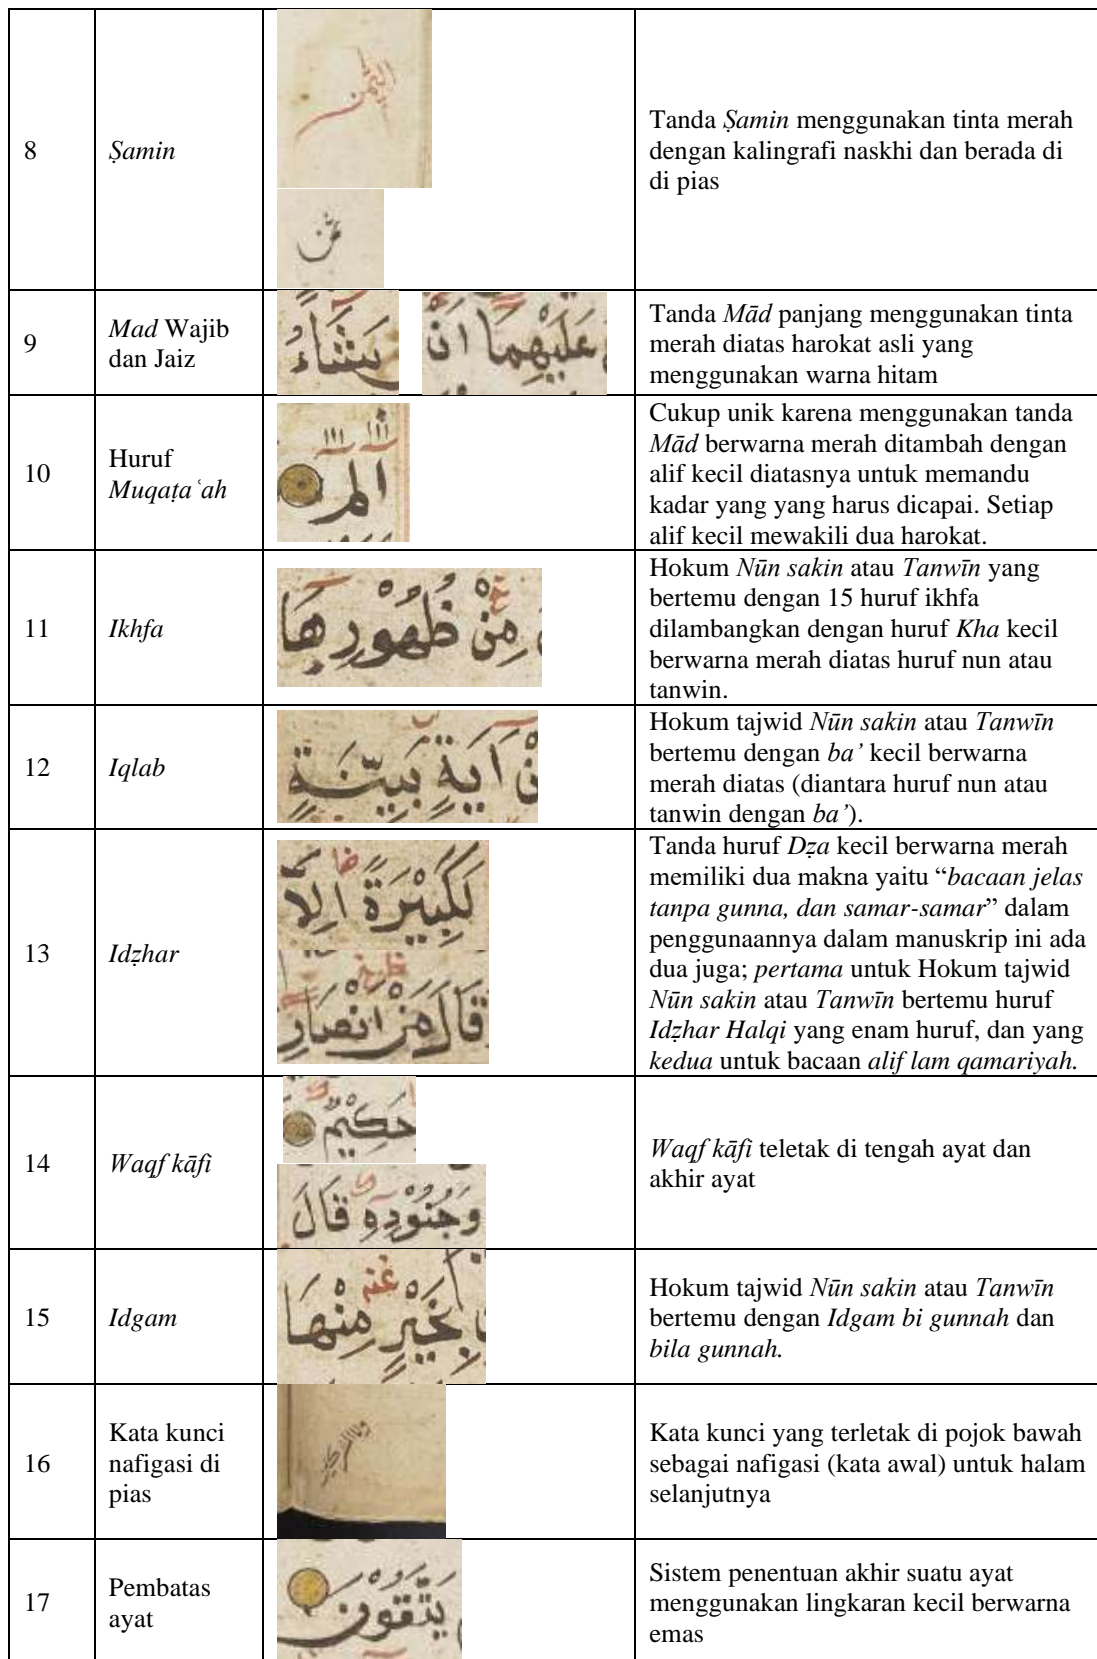 8
Ṣamin
الثمن
ثمن
Tanda Ṣamin menggunakan tinta merah
dengan kalingrafi naskhi dan berada di
di pias
9
Mad Wajib
dan Jaiz
يَشَاءُ
عَلَيْهِمَا اَنْ
Tanda Mād panjang menggunakan tinta
merah diatas harokat asli yang
menggunakan warna hitam
10
Huruf
Muqaṭaʿah
الم
Cukup unik karena menggunakan tanda
Mād berwarna merah ditambah dengan
alif kecil diatasnya untuk memandu
kadar yang yang harus dicapai. Setiap
alif kecil mewakili dua harokat.
11
Ikhfa
مِنْ ظُهُوْرِهَا
Hokum Nūn sakin atau Tanwīn yang
bertemu dengan 15 huruf ikhfa
dilambangkan dengan huruf Kha kecil
berwarna merah diatas huruf nun atau
tanwin.
12
Iqlab
نْ اٰيَةٍ بَيِّنَةٍ
Hokum tajwid Nūn sakin atau Tanwīn
bertemu dengan ba’ kecil berwarna
merah diatas (diantara huruf nun atau
tanwin dengan ba’).
13
Idẓhar
لَكَبِيْرَةً اِلَّا
قَالَ مَنْ اَنْصَارِ
Tanda huruf Dẓa kecil berwarna merah
memiliki dua makna yaitu “bacaan jelas
tanpa gunna, dan samar-samar” dalam
penggunaannya dalam manuskrip ini ada
dua juga; pertama untuk Hokum tajwid
Nūn sakin atau Tanwīn bertemu huruf
Idẓhar Halqi yang enam huruf, dan yang
kedua untuk bacaan alif lam qamariyah.
14
Waqf kāfi
حَكِيْمٌ
وَجُنُوْدِهٖ قَالَ
Waqf kāfi teletak di tengah ayat dan
akhir ayat
15
Idgam
بِخَيْرٍ مِنْهَا
Hokum tajwid Nūn sakin atau Tanwīn
bertemu dengan Idgam bi gunnah dan
bila gunnah.
16
Kata kunci
nafigasi di
pias
Kata kunci yang terletak di pojok bawah
sebagai nafigasi (kata awal) untuk halam
selanjutnya
17
Pembatas
ayat
يَتَّقُوْنَ
Sistem penentuan akhir suatu ayat
menggunakan lingkaran kecil berwarna
emas